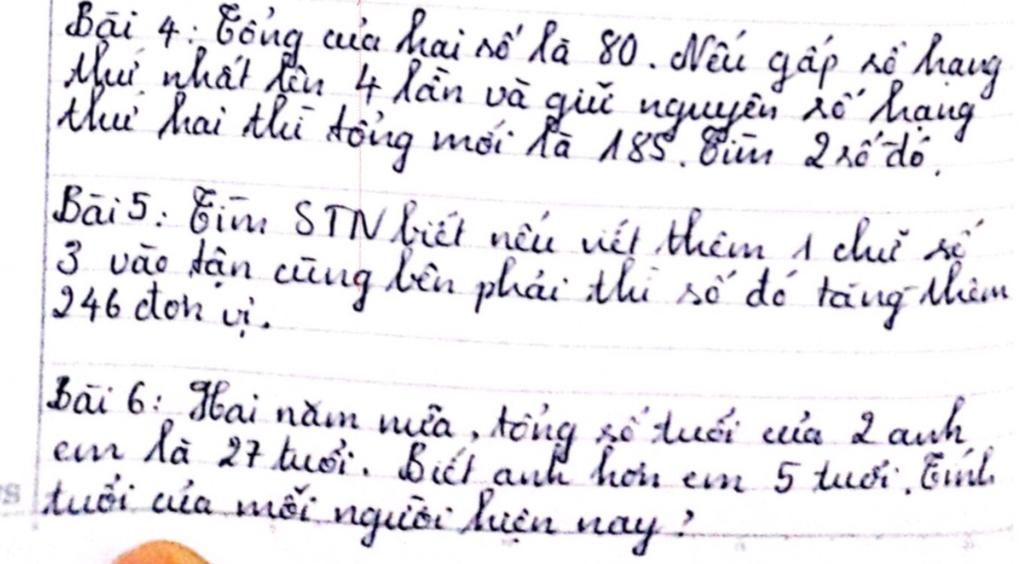 Bài 4: Tổng của hai số là 80. Nếu gấp số hạng
thứ nhất lên 4 lần và giữ nguyên số hạng
thứ hai thì tổng mới là 185. Tìm 2 số đó.
Bài 5: Tìm STN biết nếu viết thêm 1 chữ số
3 vào tận cùng bên phải thì số đó tăng thêm
246 đơn vị.
Bài 6: Hai năm nữa, tổng số tuổi của 2 anh
em là 27 tuổi. Biết anh hơn em 5 tuổi. Tính
tuổi của mỗi người hiện nay?